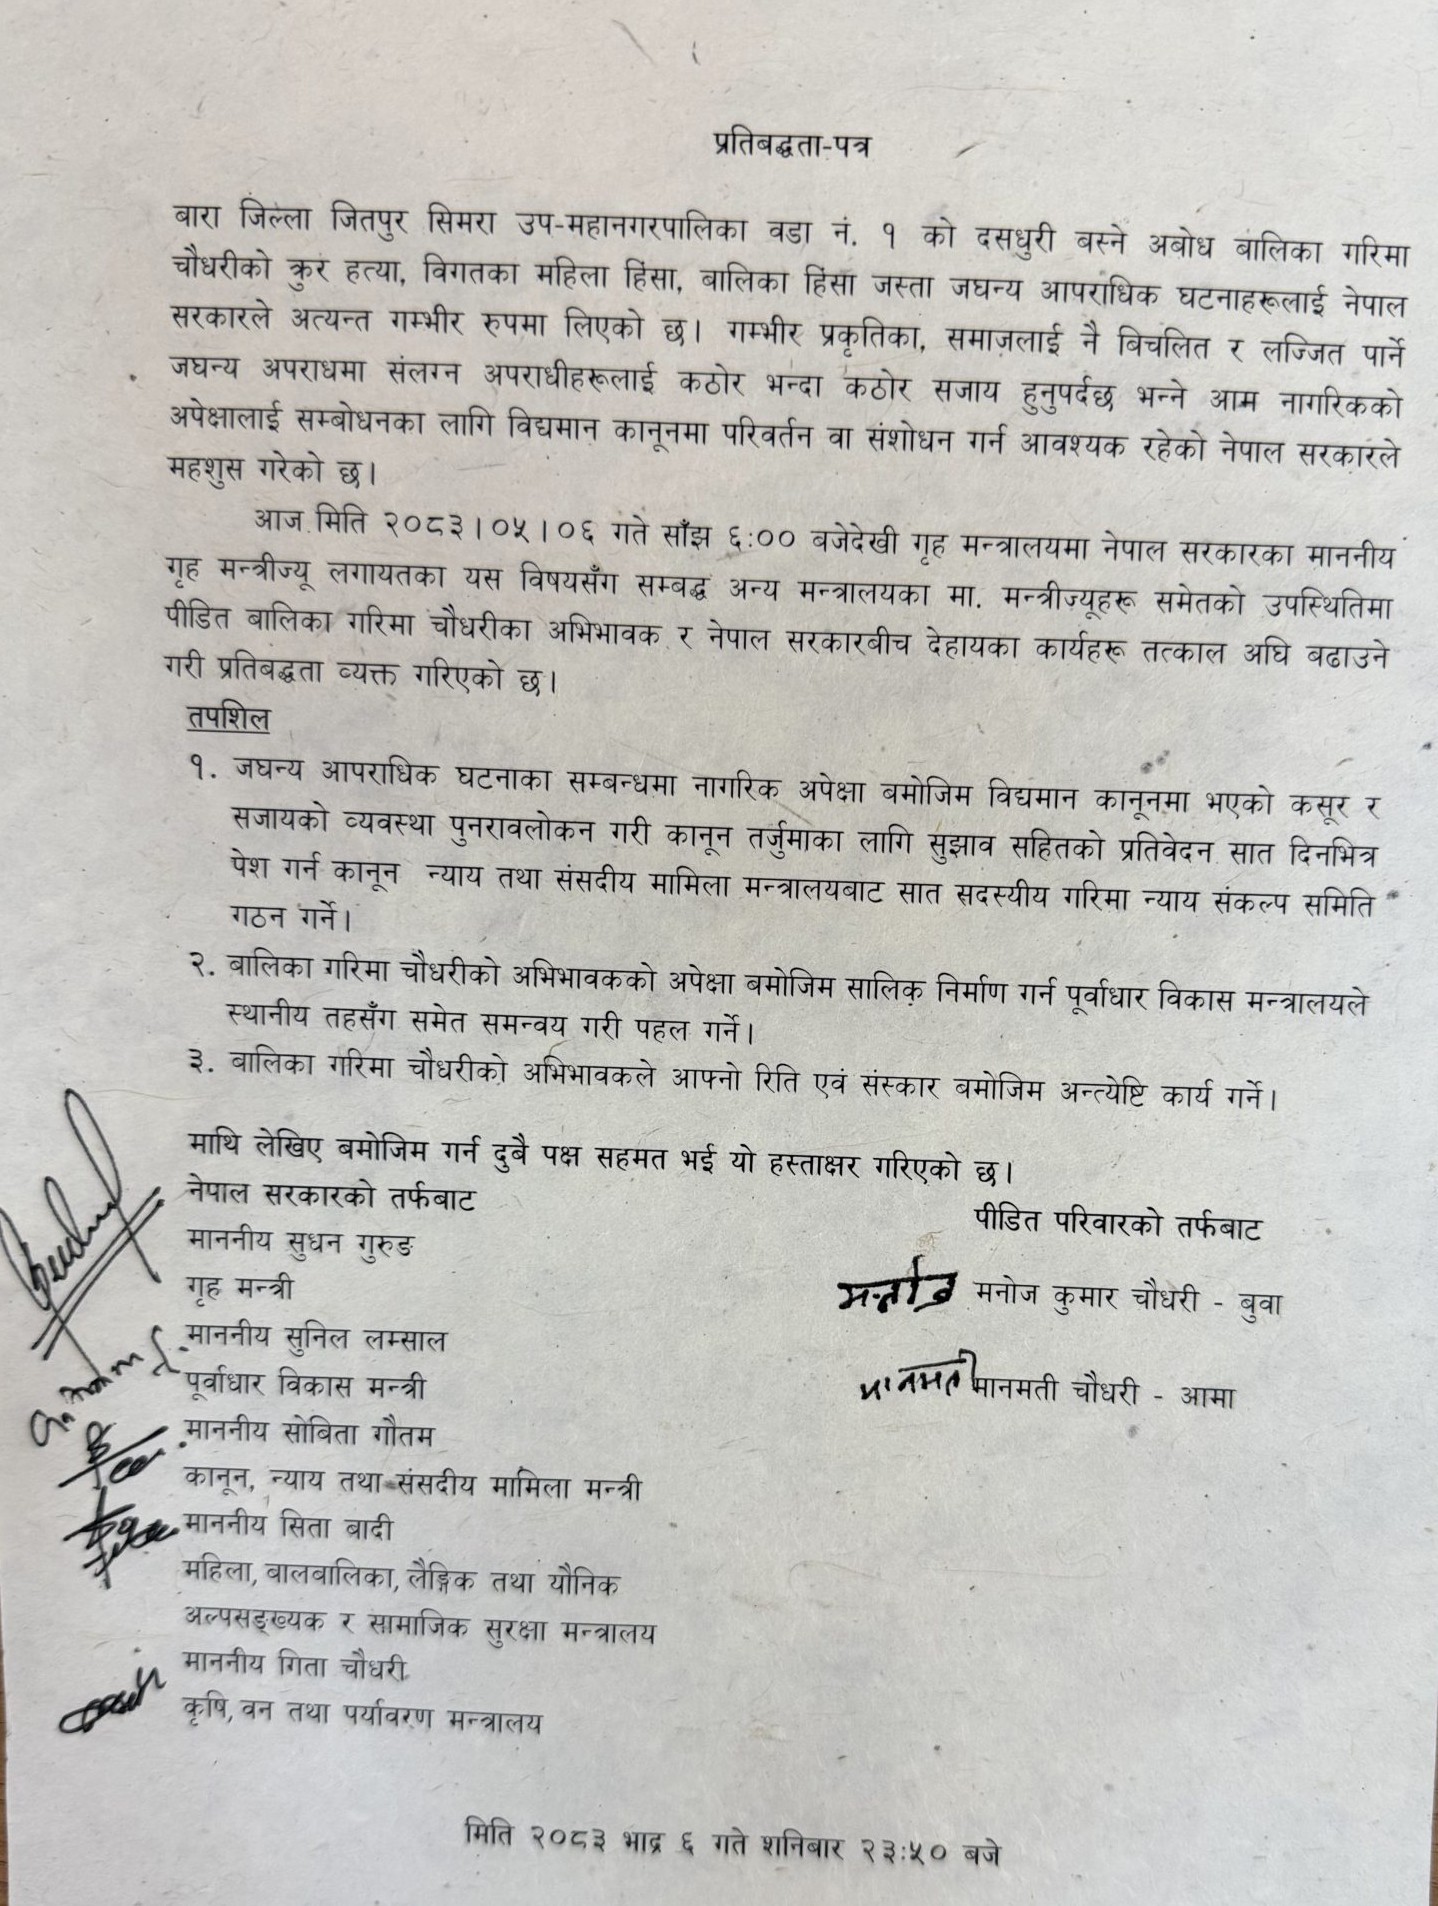 प्रतिबद्धता-पत्र
बारा जिल्ला जितपुर सिमरा उप-महानगरपालिका वडा नं. १ को दसधुरी बस्ने अबोध बालिका गरिमा
चौधरीको क्रुर हत्या, विगतका महिला हिंसा, बालिका हिंसा जस्ता जघन्य आपराधिक घटनाहरूलाई नेपाल
सरकारले अत्यन्त गम्भीर रुपमा लिएको छ। गम्भीर प्रकृतिका, समाजलाई नै बिचलित र लज्जित पार्ने
जघन्य अपराधमा संलग्न अपराधीहरूलाई कठोर भन्दा कठोर सजाय हुनुपर्दछ भन्ने आम नागरिकको
अपेक्षालाई सम्बोधनका लागि विद्यमान कानूनमा परिवर्तन वा संशोधन गर्न आवश्यक रहेको नेपाल सरकारले
महशुस गरेको छ।
आज मिति २०८३।०५।०६ गते साँझ ६:०० बजेदेखी गृह मन्त्रालयमा नेपाल सरकारका माननीय
गृह मन्त्रीज्यू लगायतका यस विषयसँग सम्बद्ध अन्य मन्त्रालयका मा. मन्त्रीज्यूहरू समेतको उपस्थितिमा
पीडित बालिका गरिमा चौधरीका अभिभावक र नेपाल सरकारबीच देहायका कार्यहरू तत्काल अघि बढाउने
गरी प्रतिबद्धता व्यक्त गरिएको छ।
तपशिल
१. जघन्य आपराधिक घटनाका सम्बन्धमा नागरिक अपेक्षा बमोजिम विद्यमान कानूनमा भएको कसूर र
सजायको व्यवस्था पुनरावलोकन गरी कानून तर्जुमाका लागि सुझाव सहितको प्रतिवेदन सात दिनभित्र
पेश गर्न कानून न्याय तथा संसदीय मामिला मन्त्रालयबाट सात सदस्यीय गरिमा न्याय संकल्प समिति
गठन गर्ने।
२. बालिका गरिमा चौधरीको अभिभावकको अपेक्षा बमोजिम सालिक निर्माण गर्न पूर्वाधार विकास मन्त्रालयले
स्थानीय तहसँग समेत समन्वय गरी पहल गर्ने।
३. बालिका गरिमा चौधरीको अभिभावकले आफ्नो रिति एवं संस्कार बमोजिम अन्त्येष्टि कार्य गर्ने।
माथि लेखिए बमोजिम गर्न दुबै पक्ष सहमत भई यो हस्ताक्षर गरिएको छ।
नेपाल सरकारको तर्फबाट
माननीय सुधन गुरुङ
गृह मन्त्री
माननीय सुनिल लम्साल
पूर्वाधार विकास मन्त्री
माननीय सोबिता गौतम
कानून, न्याय तथा संसदीय मामिला मन्त्री
माननीय सिता बादी
महिला, बालबालिका, लैङ्गिक तथा यौनिक
अल्पसङ्ख्यक र सामाजिक सुरक्षा मन्त्रालय
माननीय गिता चौधरी
कृषि, वन तथा पर्यावरण मन्त्रालय
पीडित परिवारको तर्फबाट
मनोज मनोज कुमार चौधरी - बुवा
मानमती मानमती चौधरी - आमा
मिति २०८३ भाद्र ६ गते शनिबार २३:५० बजे